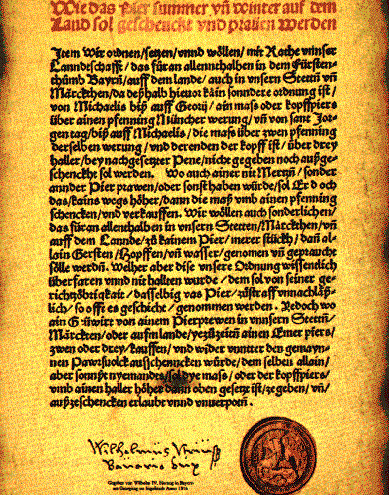 Wie das Pier summer vñ winter auf dem
Land sol geschenckt vnd prauen werden
Item Wir ordnen/setzen/vnnd wöllen/mit Rathe vnnser
Lanndeschafft/das für an allennthalben in dem Fürsten-
thůmb Bayrñ/auff dem lande/auch in vnsern Stettñ vñ
Märckthen/da deßhalb hieuor kain sonndere ordnung ist/
von Michaelis biß auff Georij/ain mass oder kopffpiers
über ainen pfenning Müncher werung/vñ von sant Jor-
gen tag/biß auff Michaelis/die mass über zwen pfenning
derselben werung/vnd derenden der kopff ist/über drey
haller/bey nachgesetzter Pene/nicht gegeben noch außge-
schenckht sol werden. Wo auch ainer nit Mertzñ/sonder
annder Pier prawen/oder sonst haben würde/sol Er doch
das/kains wegs höher/dann die maß vmb ainen pfenning
schencken/vnd verkauffen. Wir wöllen auch sonderlichen/
das für an allenthalben in vnsern Stetten/Märckthen/vñ
auff dem Lannde/zů kainem Pier/merer stückh/dañ al-
lain Gersten/Hopffen/vñ wasser/genomen vñ gepraucht
sölle werdñ. Welher aber dise vnsere Ordnung wissendlich
überfaren vnnd nit hallten wurde/dem sol von seiner ge-
richtzöbrigkait/dasselbig vas Pier/zůstraff vnnachläß-
lich/so offt es geschicht/genommen werden. Jedoch wo
ain Gäuwirt von ainem Pierprewen in vnnsern Stettñ
Märckten/oder aufm lande/yezůzeitñ ainen Emer piers/
zwen oder drey/kauffen/vnd wider vnntter den gemayn-
nen Pawrsuolck ausschenncken würde/dem selben allain/
aber sonnst nyemandts/sol dye mass/oder der kopffpiers/
vmb ainen haller höher dann oben gesetzt ist/zegeben/vñ/
außzeschencken erlaubt vnnd vnuerpotñ.
Gegeben von Wilhelm IV. Herzog in Bayern
am Georgitag zu Ingolstadt Anno 1516